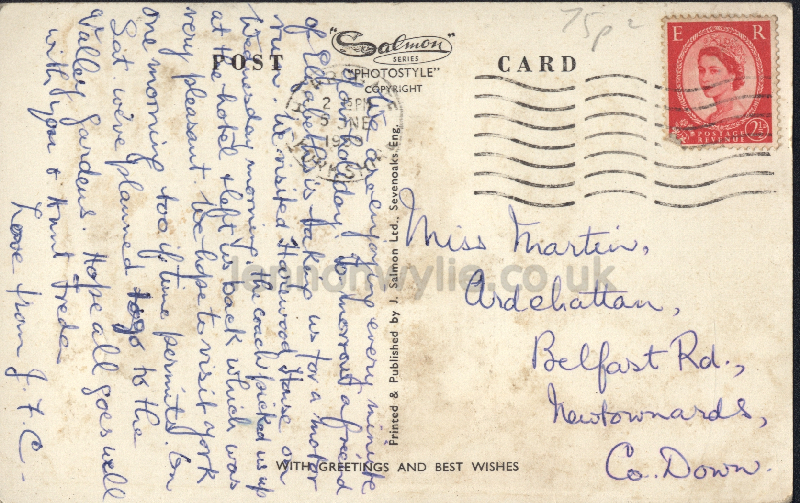 75p
"Salmon"
SERIES
POST CARD
"PHOTOSTYLE"
COPYRIGHT
E R
POSTAGE
REVENUE
2½
2 15 PM
5 JNE
19
YORKS
We are enjoying every minute
of our holiday. To-morrow a friend
of Elizabeth's is taking us for a motor
run. We visited Harewood House on
Wednesday morning. The coach picked us up
at the hotel & left us back which was
very pleasant. We hope to visit York
one morning too if time permits. On
Sat. we've planned to go to the
Valley Gardens. Hope all goes well
with you & Aunt Freda
Love from J & C.
Printed & Published by J. Salmon Ltd., Sevenoaks Eng.
Miss Martin,
Ardchattan,
Belfast Rd.,
Newtownards,
Co. Down.
lennonwylie.co.uk
WITH GREETINGS AND BEST WISHES